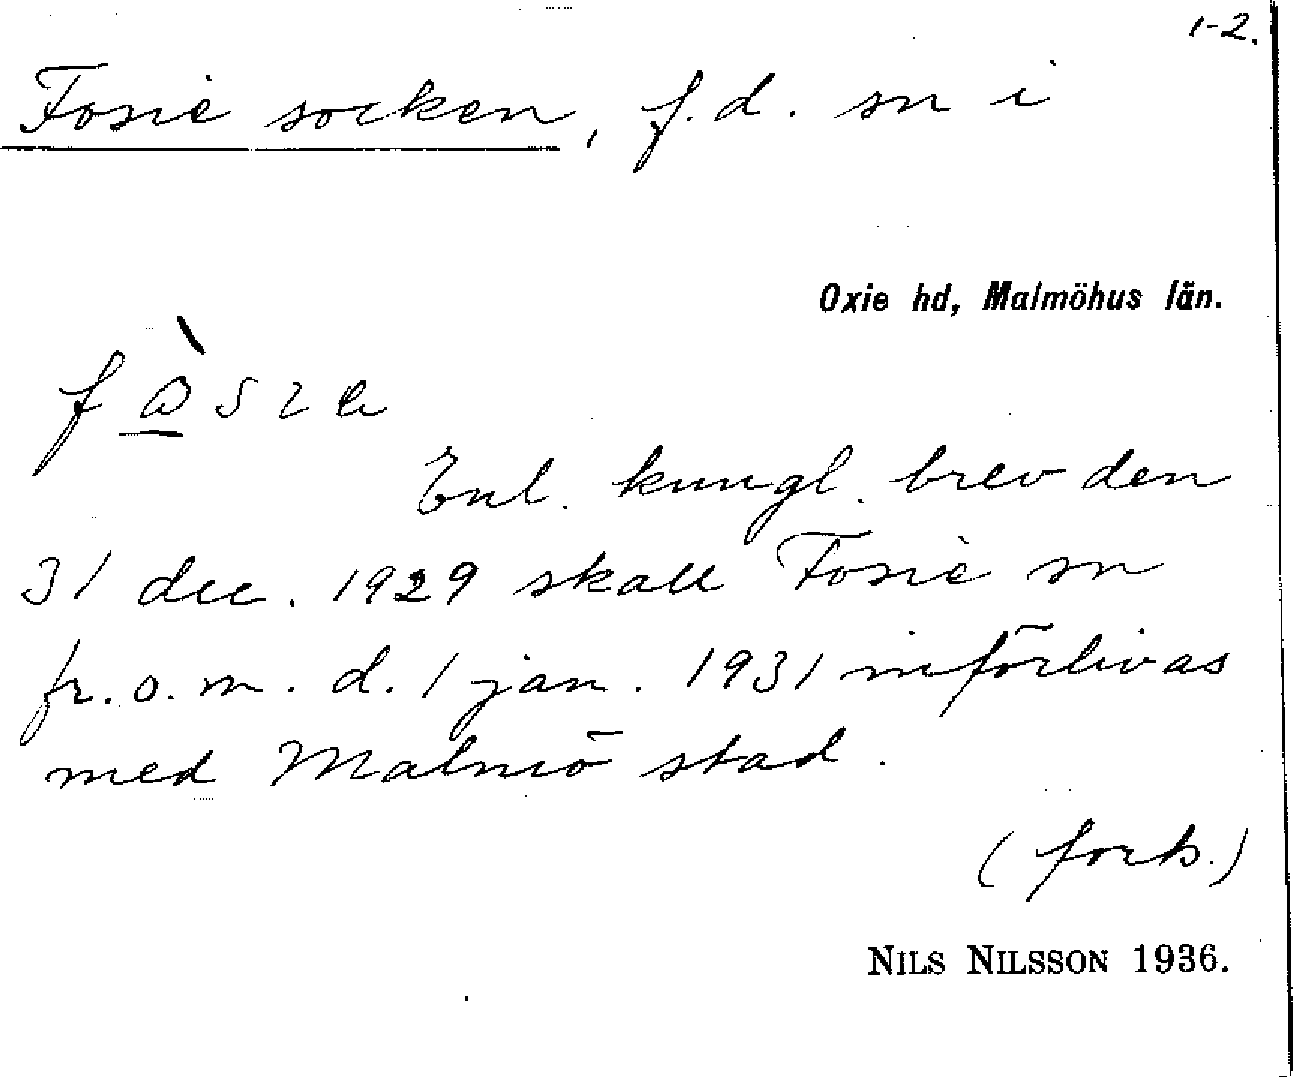 1-2.
Fosie socken, f.d. sn i
Oxie hd, Malmöhus län.
Enl. kungl. brev den
31 dec. 1929 skall Fosie sn
fr.o.m. d. 1 jan. 1931 införlivas
med Malmö stad.
(forts.)
NILS NILSSON 1936.